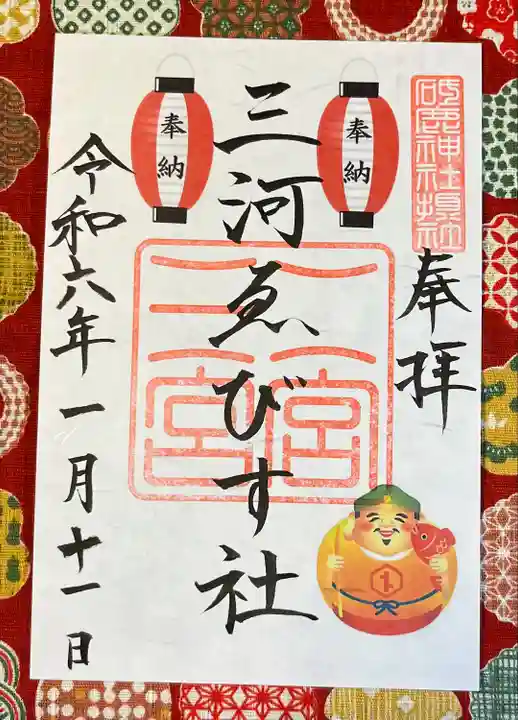 砥鹿神社摂社
奉拝
奉納
三河ゑびす社
奉納
二宮
三宮
令和六年一月十一日